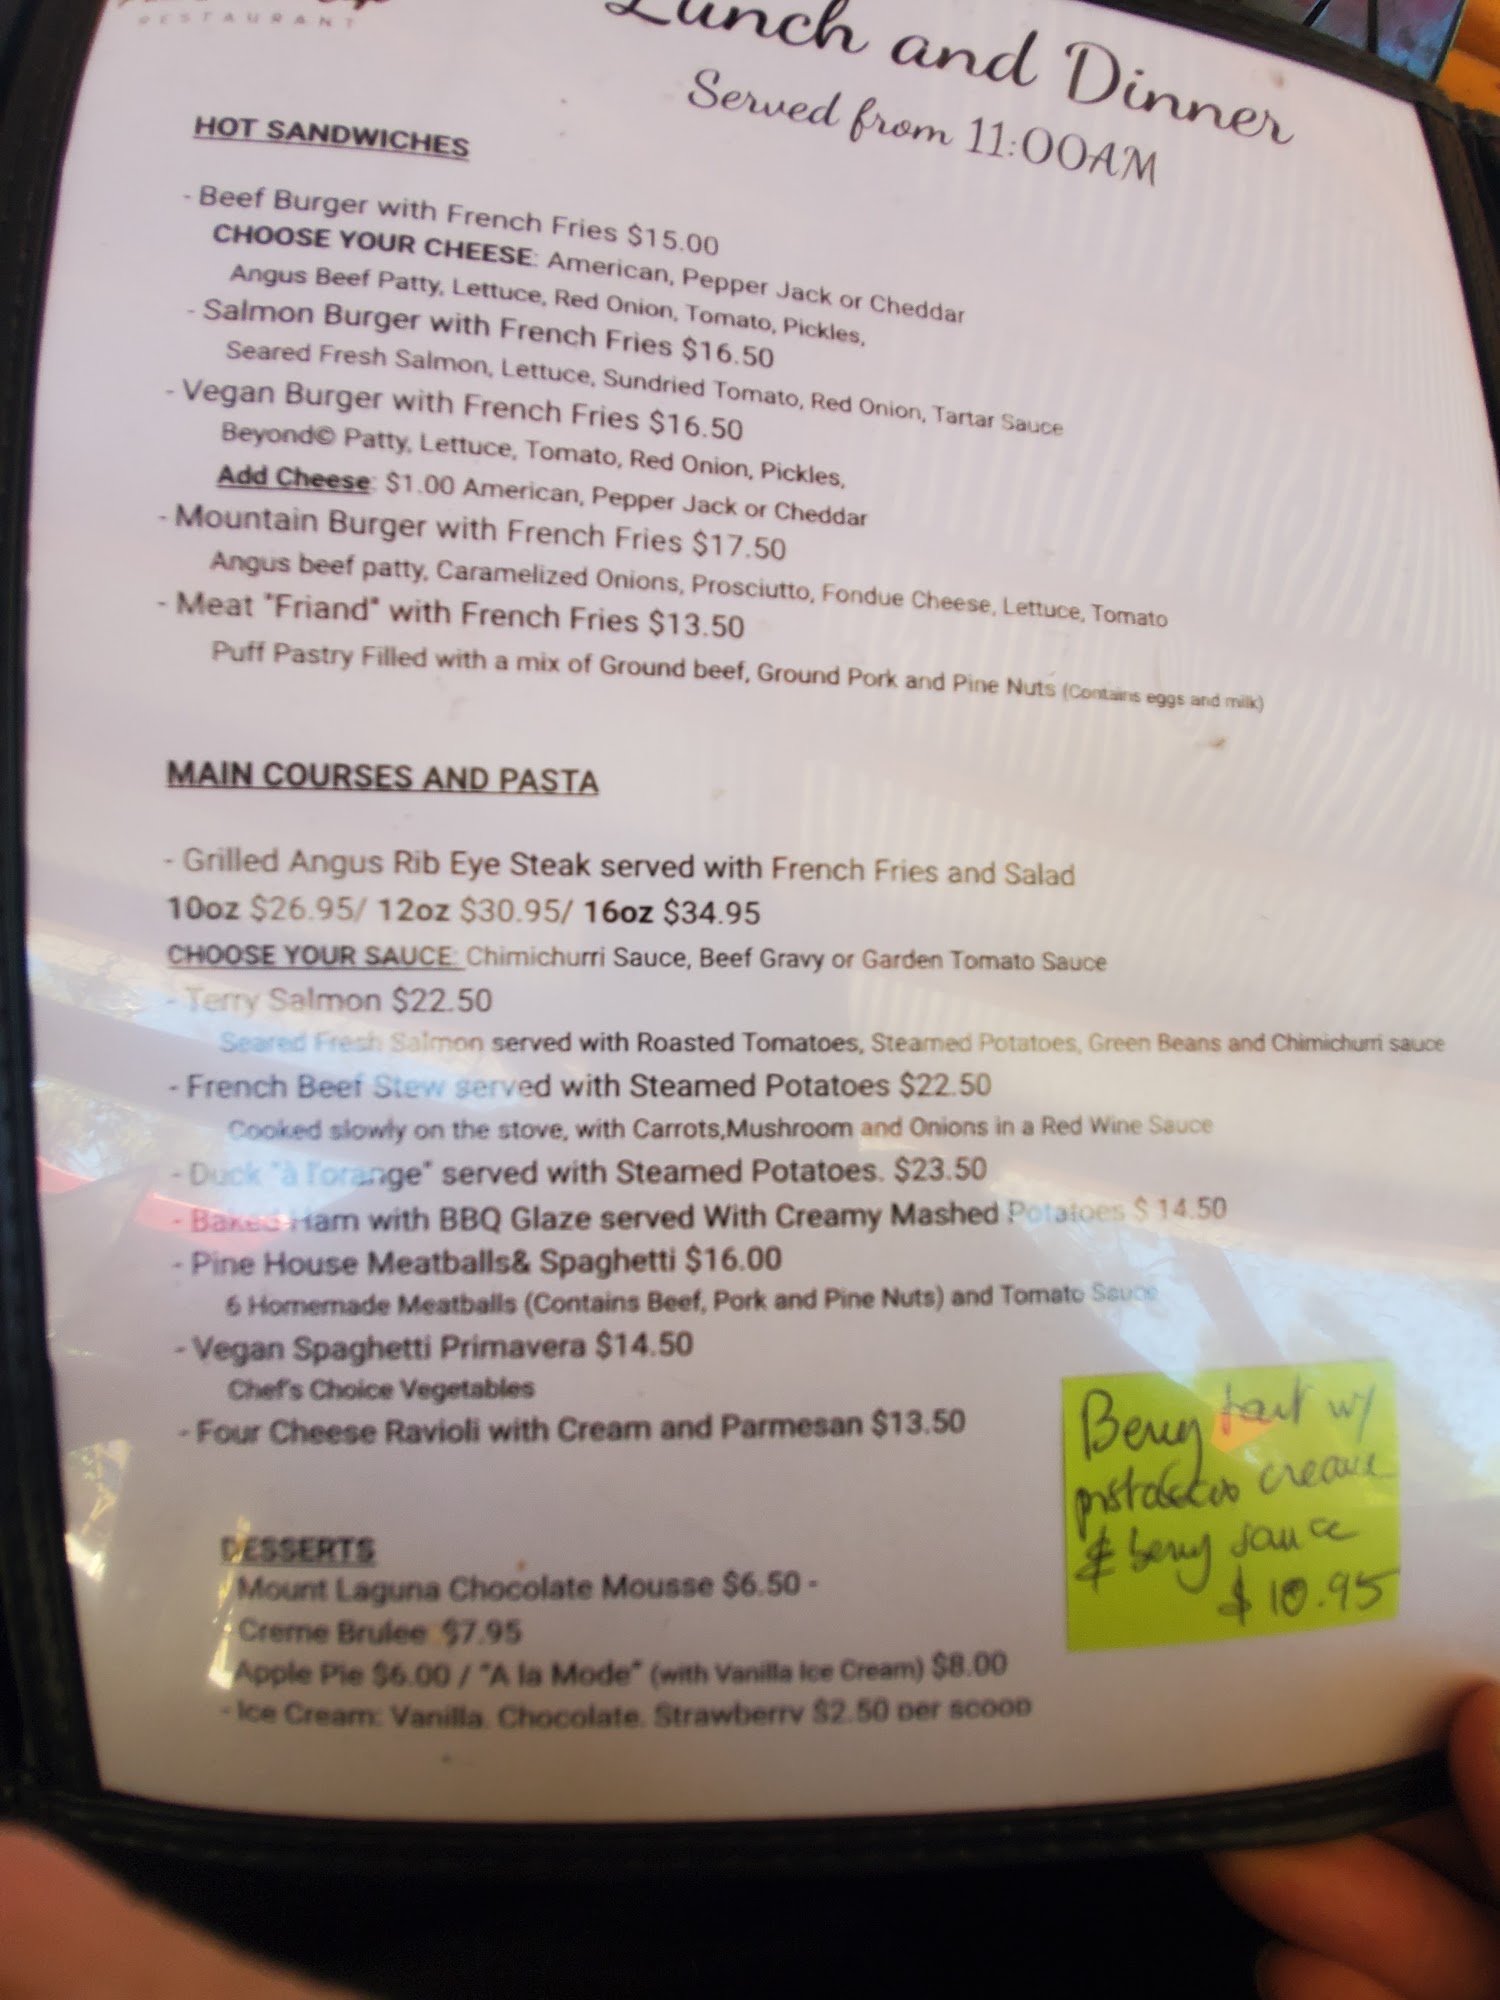 RESTAURANT
Lunch and Dinner
Served from 11:00AM
HOT SANDWICHES
- Beef Burger with French Fries $15.00
CHOOSE YOUR CHEESE: American, Pepper Jack or Cheddar
Angus Beef Patty, Lettuce, Red Onion, Tomato, Pickles,
- Salmon Burger with French Fries $16.50
Seared Fresh Salmon, Lettuce, Sundried Tomato, Red Onion, Tartar Sauce
- Vegan Burger with French Fries $16.50
Beyond© Patty, Lettuce, Tomato, Red Onion, Pickles,
Add Cheese: $1.00 American, Pepper Jack or Cheddar
- Mountain Burger with French Fries $17.50
Angus beef patty, Caramelized Onions, Prosciutto, Fondue Cheese, Lettuce, Tomato
- Meat "Friand" with French Fries $13.50
Puff Pastry Filled with a mix of Ground beef, Ground Pork and Pine Nuts (Contains eggs and milk)
MAIN COURSES AND PASTA
- Grilled Angus Rib Eye Steak served with French Fries and Salad
10oz $26.95/ 12oz $30.95/ 16oz $34.95
CHOOSE YOUR SAUCE: Chimichurri Sauce, Beef Gravy or Garden Tomato Sauce
- Terry Salmon $22.50
Seared Fresh Salmon served with Roasted Tomatoes, Steamed Potatoes, Green Beans and Chimichurri sauce
- French Beef Stew served with Steamed Potatoes $22.50
Cooked slowly on the stove, with Carrots,Mushroom and Onions in a Red Wine Sauce
- Duck "à l'orange" served with Steamed Potatoes. $23.50
- Baked Ham with BBQ Glaze served With Creamy Mashed Potatoes $ 14.50
- Pine House Meatballs& Spaghetti $16.00
6 Homemade Meatballs (Contains Beef, Pork and Pine Nuts) and Tomato Sauce
- Vegan Spaghetti Primavera $14.50
Chef's Choice Vegetables
- Four Cheese Ravioli with Cream and Parmesan $13.50
DESSERTS
Mount Laguna Chocolate Mousse $6.50 -
Creme Brulee $7.95
Apple Pie $6.00 / "A la Mode" (with Vanilla Ice Cream) $8.00
- Ice Cream: Vanilla, Chocolate, Strawberry $2.50 per scoop
Berry tart w/
creame
& berry sauce
$10.95